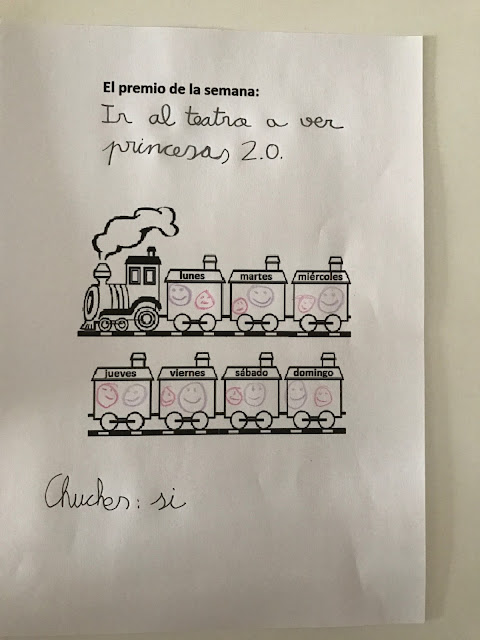 El premio de la semana:
Ir al teatro a ver
princesas 2.0.
lunes martes miércoles
jueves viernes sábado domingo
Chuches: si